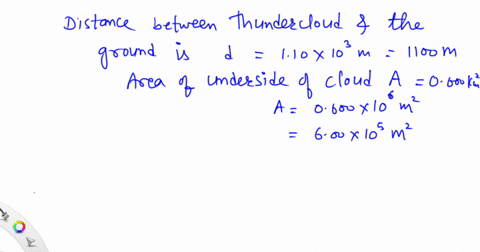 Distance between thundercloud & the
ground is d = 1.10 × 10³ m = 1100 m
Area of underside of cloud A = 0.600 km²
A = 0.600 × 10⁶ m²
= 6.00 × 10⁵ m²